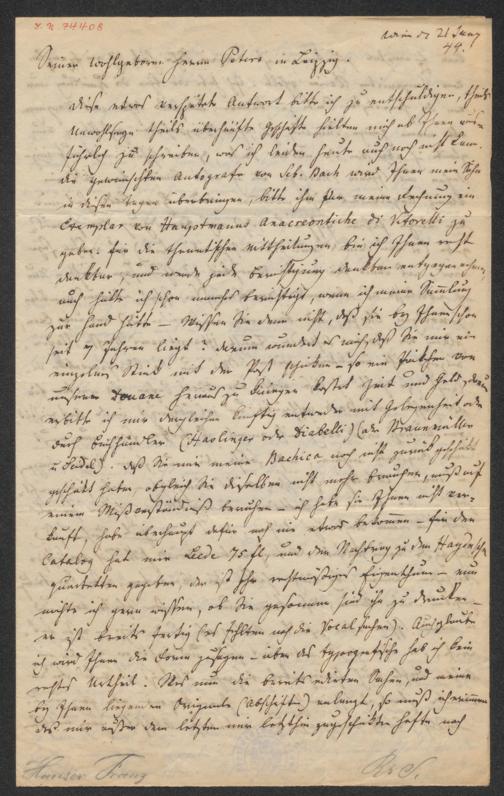 I.N. 74408
Wien d. 21 Juny
44.
Seiner Wohlgeboren Herrn Peters in Leipzig.
Diese etwas verspätete Antwort bitte ich zu entschuldigen, theils
Unwohlseyn theils überhäufte Geschäfte hielten mich ab Ihnen
zu schreiben, was ich leider heute auch noch nicht kann.
Die gewünschten Autografe von Seb. Bach wird Ihnen mein Sohn
in diesen Tagen überbringen, bitte ihm für meine Rechnung ein
Exemplar von Hauptmanns Anacreontiche di Vitorelli zu
geben. Für die thematischen Mittheilungen bin ich Ihnen recht
dankbar, und werde jede Berichtigung dankbar entgegennehmen,
auch hätte ich schon manches berichtigt, wenn ich meine Sammlung
zur Hand hätte – Wissen Sie denn nicht, daß sie bey Ihnen schon
seit 7 Jahren liegt? darum wundert es mich, daß Sie mir ein
einzelnes Stück mit der Post schicken – so ein Päckchen von
unserer Douane heraus zu bringen kostet Zeit und Geld,
erbitte ich mir dergleichen künftig entweder mit Gelegenheit oder
durch Buchhändler (Haslinger oder Diabelli) (oder Braumüller
u Seidel). Daß Sie mir meine Bachica noch nicht zurück
geschickt haben, obgleich Sie dieselben nicht mehr brauchen, muß auf
einem Mißverständniß beruhen – ich habe sie Ihnen nicht ver-
kauft, habe überhaupt dafür noch nie etwas bekommen – für den
Catalog hat mir Leede 75 fl, und den Nachtrag zu den Haydnschen
Quartetten gegeben, der ist Ihr rechtmäßiges Eigenthum – nun
möchte ich gern wissen, ob Sie gesonnen sind ihn zu drucken –
er ist bereits fertig (es fehlten noch die Vocalsachen).
ich wird Ihnen die Form zusagen – über das typografische hab ich kein
rechtes Urtheil. Was nun die bereits edirten Sachen, und meine
bey Ihnen liegenden Originale (Abschriften) anlangt, so muß ich erinnern
daß mir außer dem letzten mir letzthin zugeschickten Hefte noch
Hauser Franz